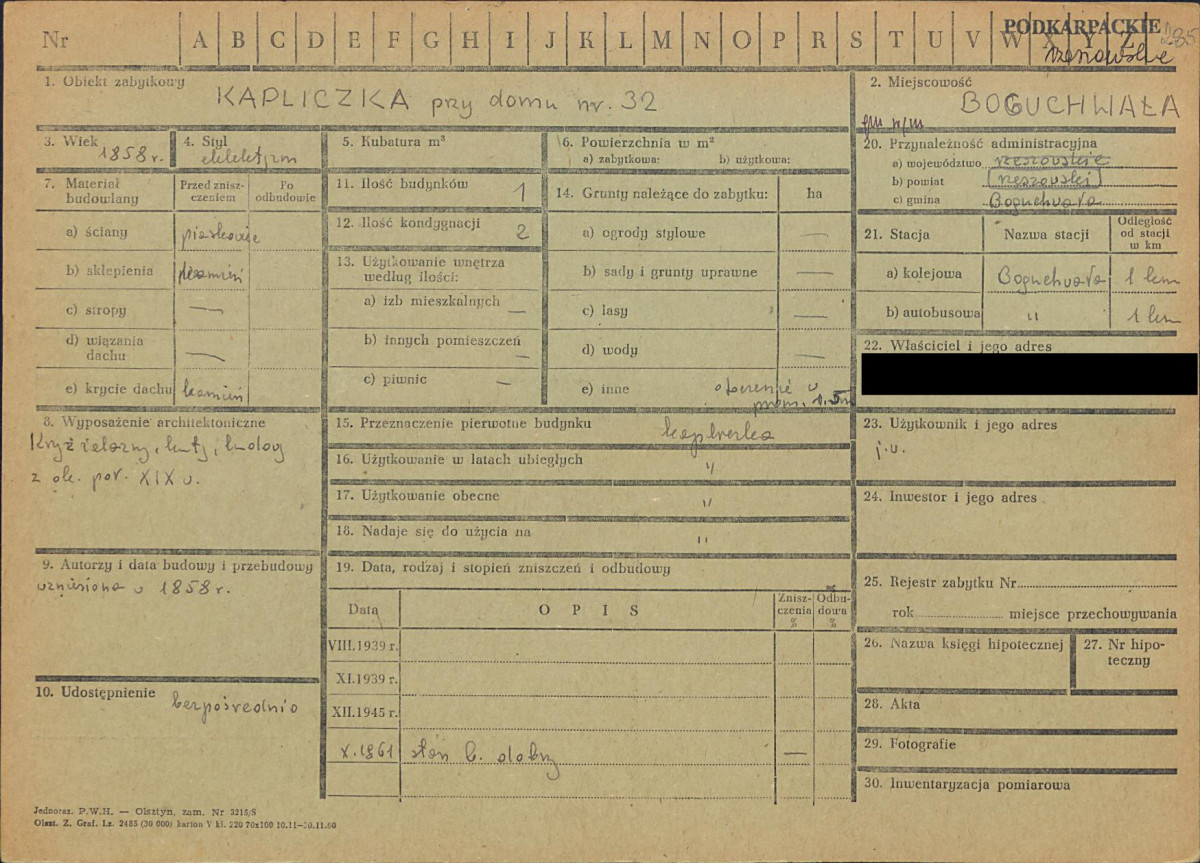 Nr A B C D E F G H I J K L M N O P R S T U V W X Y Z
PODKARPACKIE
rzeszowskie
285
1. Obiekt zabytkowy
KAPLICZKA przy domu nr. 32
2. Miejscowość
BOGUCHWAŁA
gm n/m
3. Wiek
1858 r.
4. Styl
eklektyzm
5. Kubatura m³
6. Powierzchnia w m²
a) zabytkowa: b) użytkowa:
20. Przynależność administracyjna
a) województwo rzeszowskie
b) powiat rzeszowski
c) gmina Boguchwała
7. Materiał budowlany
Przed zniszczeniem
Po odbudowie
a) ściany piaskowiec
b) sklepienia kamień
c) stropy —
d) wiązania dachu —
e) krycie dachu kamień
11. Ilość budynków 1
12. Ilość kondygnacji 2
13. Użytkowanie wnętrza według ilości:
a) izb mieszkalnych —
b) innych pomieszczeń —
c) piwnic —
14. Grunty należące do zabytku: ha
a) ogrody stylowe —
b) sady i grunty uprawne —
c) lasy —
d) wody —
e) inne otoczenie w
prom.
21. Stacja
Nazwa stacji
Odległość od stacji w km
a) kolejowa Boguchwała 1 km
b) autobusowa " 1 km
22. Właściciel i jego adres
8. Wyposażenie architektoniczne
Krzyż żelazny, kuty,
z ok. poł. XIX w.
15. Przeznaczenie pierwotne budynku kapliczka
16. Użytkowanie w latach ubiegłych "
17. Użytkowanie obecne "
18. Nadaje się do użycia na "
23. Użytkownik i jego adres
j.w.
24. Inwestor i jego adres
9. Autorzy i data budowy i przebudowy
wzniesiona w 1858 r.
19. Data, rodzaj i stopień zniszczeń i odbudowy
Data
OPIS
Zniszczenia %
Odbudowa %
VIII.1939 r.
XI.1939 r.
XII.1945 r.
X.1961 stan b. dobry —
25. Rejestr zabytku Nr
rok miejsce przechowywania
26. Nazwa księgi hipotecznej
27. Nr hipoteczny
10. Udostępnienie
bezpośrednio
28. Akta
29. Fotografie
30. Inwentaryzacja pomiarowa
Jednoraz. P.W.H. — Olsztyn, zam. Nr 3215/S
Olszt. Z. Graf. Lz. 2485 (30 000) karton V kl. 220 70x100 10.11—30.11.60